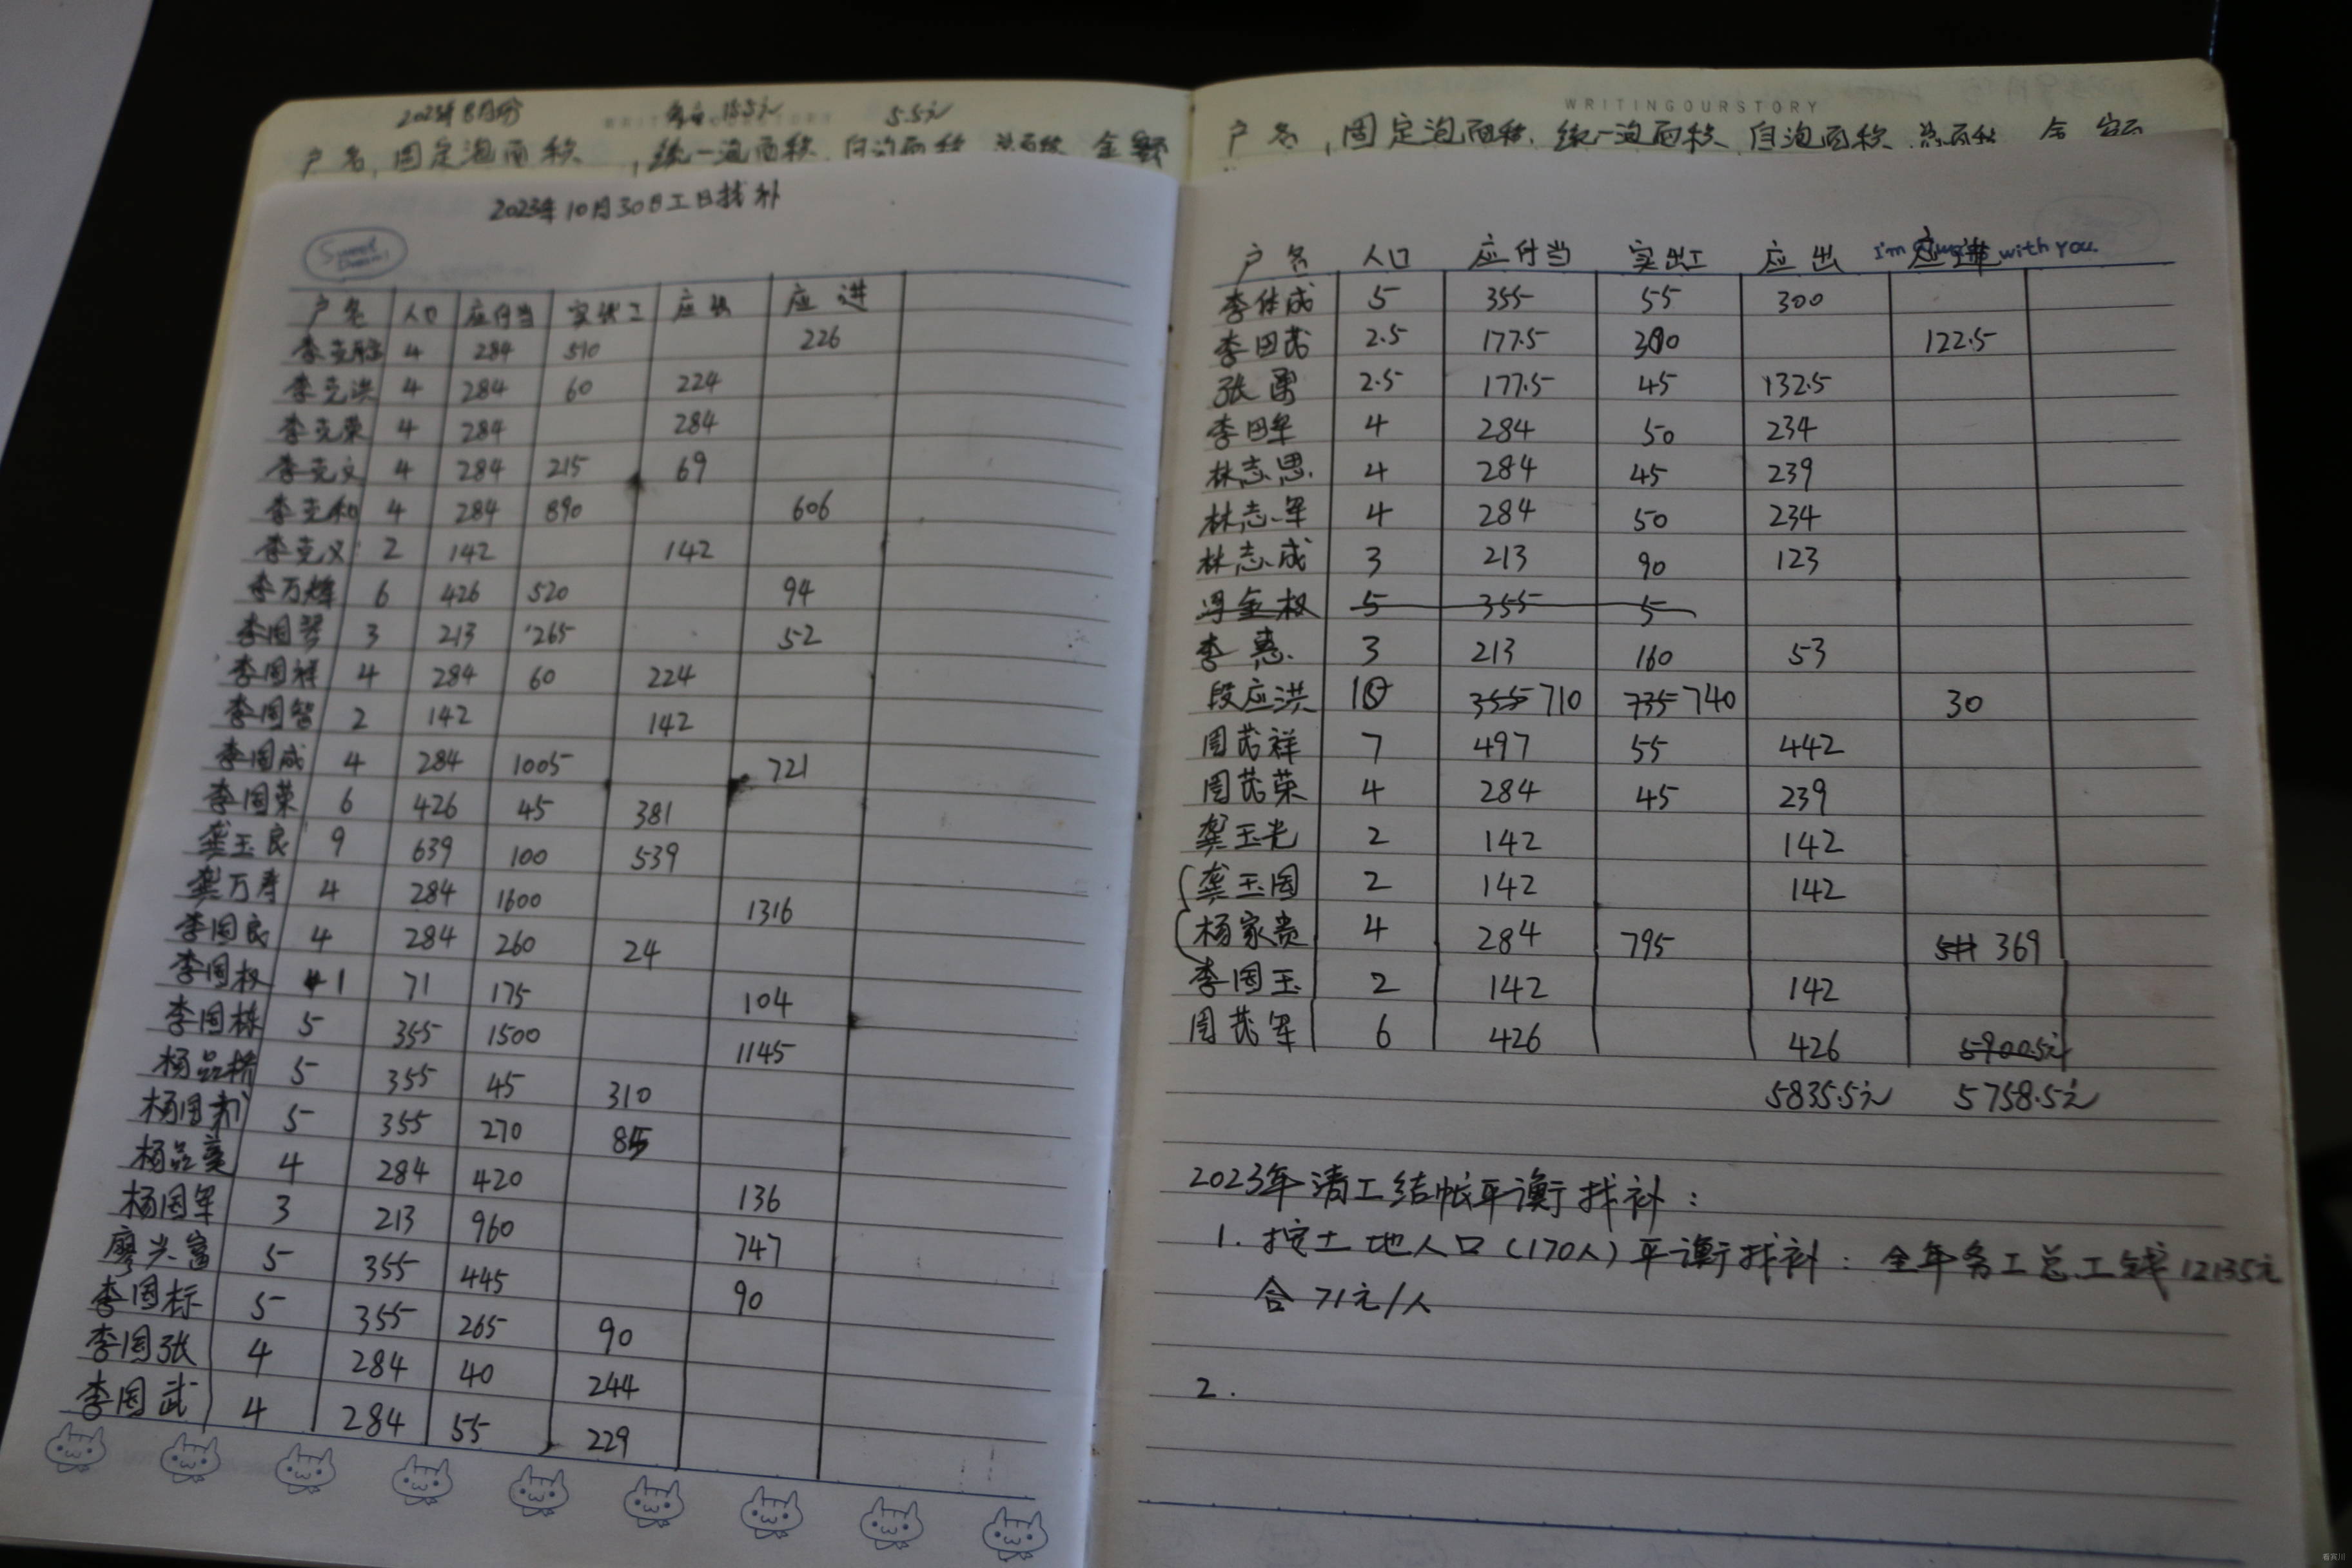 2023年8月份
5.5元
户名,固定泡面积,统一泡面积.自泡面积 总面积 金额
2023年10月30日工日找补
Sweet
户名 人口 应付当 实出工 应出 应进
李克 4 284 510 226
李克洪 4 284 60 224
李克荣 4 284 284
李克文 4 284 215 69
李克和 4 284 890 606
李克义 2 142 142
李万辉 6 426 520 94
李国琴 3 213 265 52
李国祥 4 284 60 224
李国智 2 142 142
李国成 4 284 1005 721
李国荣 6 426 45 381
龚玉良 9 639 100 539
龚万寿 4 284 1600 1316
李国良 4 284 260 24
李国权 1 71 175 104
李国栋 5 355 1500 1145
杨品桥 5 355 45 310
杨国 5 355 270 85
杨品 4 284 420 136
杨国军 3 213 960 747
廖兴富 5 355 445 90
李国标 5 355 265 90
李国张 4 284 40 244
李国武 4 284 55 229
WRITINGOURSTORY
户名,固定泡面积.统一泡面积 自泡面积 总面积 金
户名 人口 应付当 实出工 应出 应进
I'm with you.
李体成 5 355 55 300
李国茂 2.5 177.5 300 122.5
张勇 2.5 177.5 45 132.5
李国军 4 284 50 234
林志思 4 284 45 239
林志军 4 284 50 234
林志成 3 213 90 123
金权 5 355 5
李惠 3 213 160 53
段应洪 10 355 710 735 740 30
周茂祥 7 497 55 442
周茂荣 4 284 45 239
龚玉光 2 142 142
龚玉国 2 142 142
杨家贵 4 284 795 511 369
李国玉 2 142 142
周茂军 6 426 426 5900.5元
5835.5元 5758.5元
2023年清工结帐平衡找补:
1. 按土地人口(170人)平衡找补:全年务工总工钱12135元
合71元/人
2.